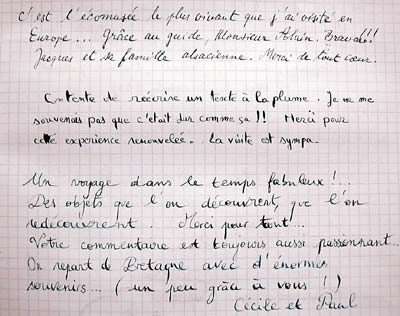 C'est l'écomusée le plus vivant que j'ai visité en
Europe... Grâce au guide, Monsieur Alain. Bravo!!
Jacques et sa famille alsacienne. Merci de tout cœur.
Contente de réécrire un texte à la plume. Je ne me
souvenais pas que c'était dur comme ça !! Merci pour
cette experience renouvelée.. La visite est sympa.
Un voyage dans le temps fabuleux!...
Des objets que l'on découvrent, que l'on
redécouvrent. Merci pour tout...
Votre commentaire est toujours aussi passionnant...
On repart de Bretagne avec d'énormes
souvenirs... (un peu grâce à vous !)
Cécile et Paul